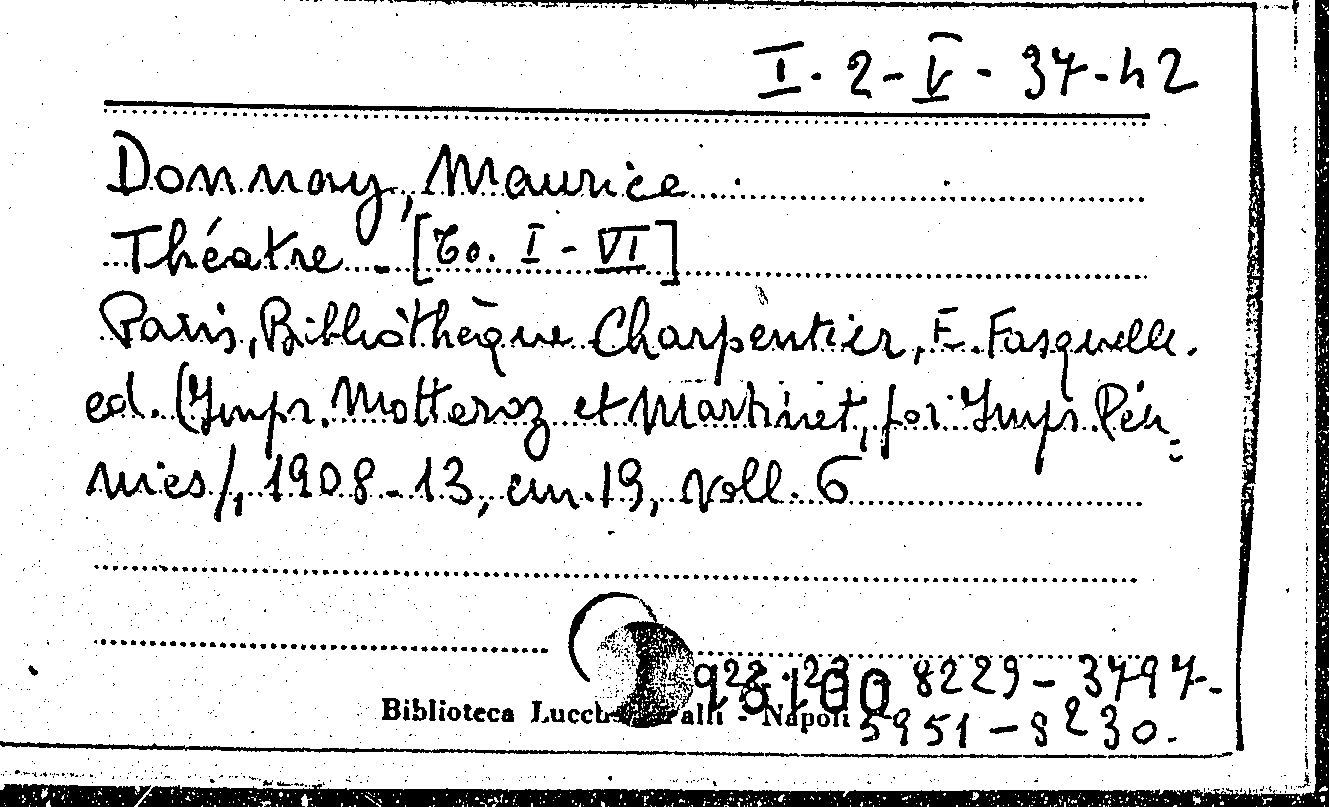 I. 2 - V - 37-42
Donnay, Maurice
Théatre - [To. I - VI]
Paris, Bibliothèque Charpentier, E. Fasquelle.
ed. (Impr. Motteroz et Martinet, poi Impr. Réu
nies/, 1908-13, cm. 19, voll. 6
8229 - 3797-
Biblioteca Lucchesi Palli - Napoli
5951 - 8230.